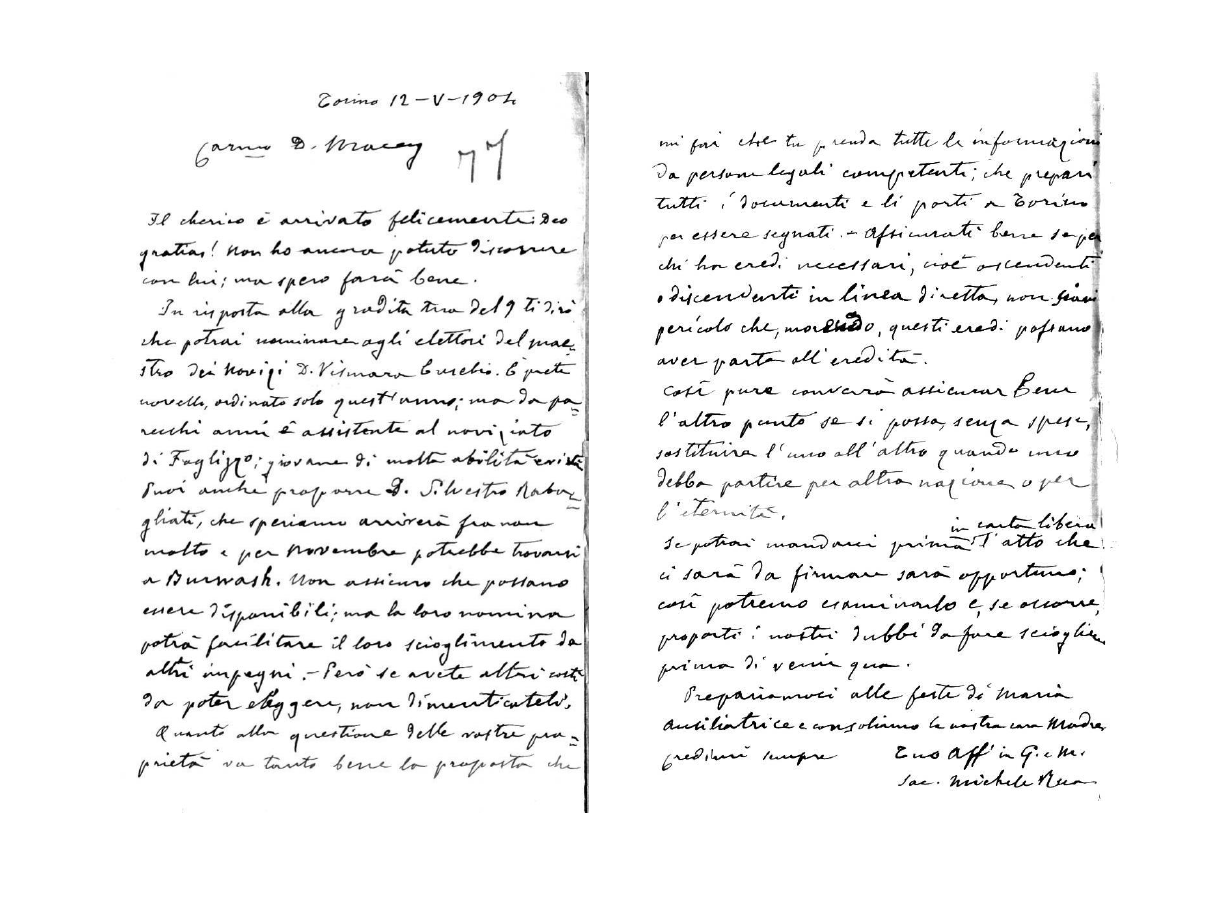 Torino 12-V-1904
Carmo D. Macey
77
Il chierico è arrivato felicemente: Deo
gratias! Non ho ancora potuto discorrere
con lui; ma spero farà bene.
In risposta alla gradita tua del 9 ti dirò
che potrai nominare agli elettori del mae=
stro dei Novizi D. Vismara Eusebio. È prete
novello, ordinato solo quest'anno; ma da pa=
recchi anni è assistente al noviziato
di Foglizzo; giovane di molta abilità
Puoi anche proporre D. Silvestro Raba=
gliati, che speriamo arriverà fra non
molto e per Novembre potrebbe trovarsi
a Burwash. Non assicuro che possano
essere disponibili; ma la loro nomina
potrà facilitare il loro scioglimento da
altri impegni. - Però se avete altri costì
da poter eleggere, non dimenticateli.
Quanto alla questione delle vostre pro=
prietà va tanto bene la proposta che
mi fai che tu prenda tutte le informazioni
da persone legali competenti; che prepari
tutti i documenti e li porti a Torino
per essere segnati. - Assicurati bene se per
chi ha eredi necessari, cioè ascendenti
o discendenti in linea diretta, non siavi
pericolo che, morendo, questi eredi possano
aver parte all'eredità.
Così pure converrà assicurar bene
l'altro punto se si possa, senza spese,
sostituire l'uno all'altro quando uno
debba partire per altra nazione o per
l'eternità.
in carta libera
Se potrai mandarci prima l'atto che
ci sarà da firmare sarà opportuno;
così potremo esaminarlo e, se occorre,
proporti i nostri dubbi da fare sciogliere
prima di venir qua.
Prepariamoci alle feste di Maria
Ausiliatrice e consoliamo la nostra cara Madre
Credimi sempre Tuo Aff in G. e M.
Sac. Michele Rua